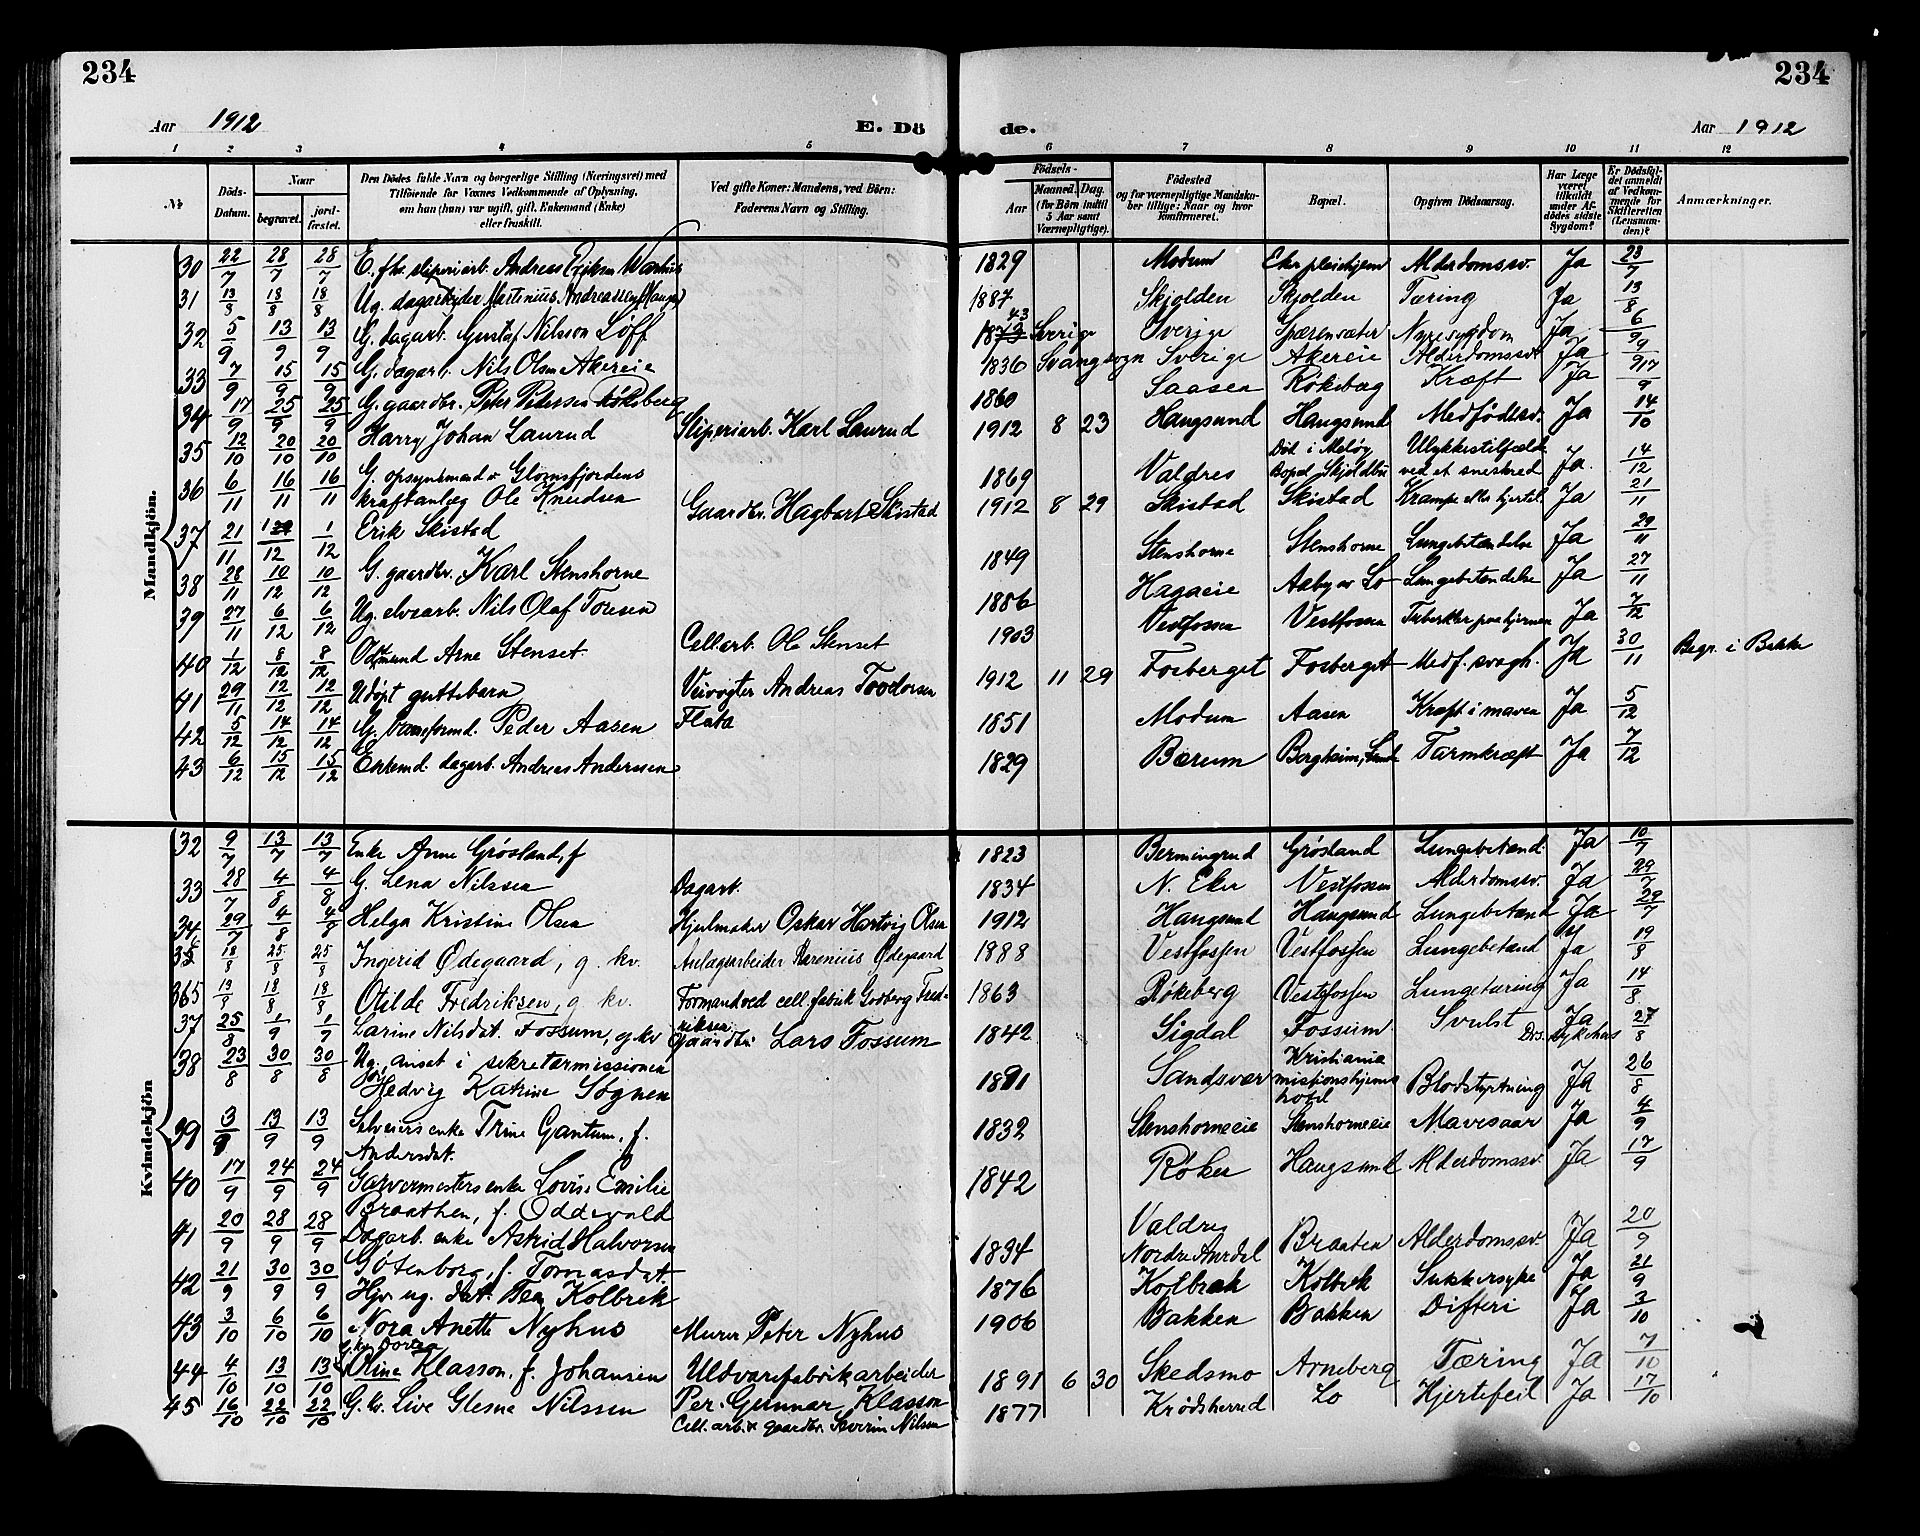 234
234
Aar 1912
E. Dö de.
Aar 1912
1 2 3 4 5 6 7 8 9 10 11 12
№
Döds-Datum.
Naar
begravet.
jordfæstet.
Den Dödes fulde Navn og borgerlige Stilling (Næringsvei) med
Tilföiende for Voxnes Vedkommende af Oplysning,
om han (hun) var ugift, gift, Enkemand (Enke)
eller fraskilt.
Ved gifte Koner: Mandens, ved Börn:
Faderens Navn og Stilling.
Födsels-
Aar
Maaned. Dag.
(for Börn indtil 5 Aar samt Værnepligtige).
Födested
og for værnepligtige Mandskaber tillige: Naar og hvor Konfirmeret.
Bopæl.
Opgiven Dödsaarsag.
Har Læge været tilkaldt under Afdödes sidste Sygdom?
Er Dödsfaldet anmeldt af Vedkommende for Skifteretten (Lensmanden)?
Anmærkninger.
Mandkjön.
30 22/7 28/7 28/7 E. fhv. sliperiarb. Andreas Eriksen 1829 Modum Eker pleiehjem Alderdomssv. Ja 23/7
31 13/8 18/8 18/8 Ug. dagarbeider Martinius Andreassen 1887 Skjolden Skjolden Tæring Ja 13/8
32 5/9 13/9 13/9 G. dagarb. Gustaf Nilsson Löff 1873 43 Sverige Sverige Sperensæter Nyresygdom Ja 6/9
33 7/9 15/9 15/9 G. dagarb. Nils Olsen Akereie 1836 Svangsogn Sverige Akereie Alderdomssv. Ja 9/9
34 17/9 25/9 25/9 G. gaardbr. Peter Pedersen Røkeberg 1860 Saasen Røkeberg Kræft Ja 17/9
35 12/10 20/10 20/10 Harry Johan Laurud Sliperiarb. Karl Laurud 1912 8 23 Haugsund Haugsund Medfödtsv. Ja 14/10
36 6/11 16/11 16/11 G. opsynsmand v. Glomfjordens
kraftanlæg Ole Knudsen 1869 Valdres Död i Melöy
Bopæl Skjoldbu Ulykkestilfælde
ved et sneskred Ja 14/12
37 21/11 1/12 1/12 Erik Skistad Gaardbr. Hagbart Skistad 1912 8 29 Skistad Skistad Krampe eller hjertel. Ja 21/11
38 28/11 10/12 10/12 G. gaardbr. Karl Stenshorne 1849 Stenshorne Stenshorne Lungebetændelse Ja 29/11
39 27/11 6/12 6/12 Ug. elvearb. Nils Olaf Toresen 1886 Hagaeie Aaby av Lo Lungebetændelse Ja 27/11
40 1/12 8/12 8/12 Odmund Arne Stenset Cell.arb. Ole Stenset 1903 Vestfossen Vestfossen Tuberkler paa hjernen Ja 7/12
41 29/11 12/12 12/12 Udöpt guttebarn Veivogter Andreas Toodorsen
Flata 1912 11 29 Fosberget Fosberget Medf. svagh. Ja 30/11 Begr. i Bakke
42 5/12 14/12 14/12 G. Peder Aasen 1851 Modum Aasen Kræft i maven Ja 5/12
43 6/12 15/12 15/12 Enkemd. dagarb. Andreas Anderssen 1829 Bærum Bergheim, Tarmkræft Ja 7/12
Kvindekjön
32 9/7 13/7 13/7 Enke Anne Grøsland, f 1823 Bermingrud Grøsland Lungebetænd. Ja 10/7
33 28/7 4/8 4/8 G. Lena Nilssen Dagarb. 1834 N. Eker Vestfossen Alderdomssv. Ja 29/7
34 29/7 4/8 4/8 Helga Kristine Olsen Hjulmader Oskar Hartvig Olsen 1912 Haugsund Haugsund Lungebetænd Ja 29/7
35 18/8 25/8 25/8 Ingerid Ødegaard, g. kv. Anlægsarbeider Karenius Ødegaard 1888 Vestfossen Vestfossen Lungebetænd Ja 19/8
36 13/8 18/8 18/8 Otilde Fredriksen, g. kv. Formand ved cell. fabrik Godberg Fredriksen 1863 Røkeberg Vestfossen Lungetæring Ja 14/8
37 25/8 1/9 1/9 Larine Nilsdat. Fossum, g. kv Gaardbr. Lars Fossum 1842 Sigdal Fossum Svulst Ja Drs. sykehus 27/8
38 23/8 30/8 30/8 Ug. anset i sekretærmissionen
Hedvig Katrine Søgnen 1891 Sandsvær Kristiania
missionshjems
hotel Blodstyrtning Ja 26/8
39 3/9 13/9 13/9 Selveiers enke Trine Gantum, f.
Andersdat. 1832 Stenshorneeie Stenshorneeie Mavesaar Ja 4/9
40 17/9 24/9 24/9 Garvermesters enke Lovise Emilie
Braathen, f. Oddevald 1842 Røken Haugsund Alderdomssv. Ja 17/9
41 20/9 28/9 28/9 Dagarb. enke Astrid Halvorsen
Gøtenborg, f. Tomasdat. 1834 Valdres
Nordre Aurdal Braaten Alderdomssv. Ja 20/9
42 21/9 30/9 30/9 Hjv. ug. Kolbrek 1876 Kolbrek Kolbrek Sukkersyke Ja 21/9
43 3/10 6/10 6/10 Nora Anette Nyhus Murer Peter Nyhus 1906 Bakken Bakken Difteri Ja 3/10
44 4/10 13/10 13/10 g. kv. Dovea
Oline Klasson, f. Johansen Uldvarefabrikarbeider
Per Gunnar Klasson 1891 6 30 Skedsmo Arneberg Tæring Ja 7/10
45 16/10 22/10 22/10 G. kv. Live Glesne Nilssen Cell. arb. & gaardbr. Severin Nilsen 1877 Krødsherred Lo Hjertefeil Ja 17/10